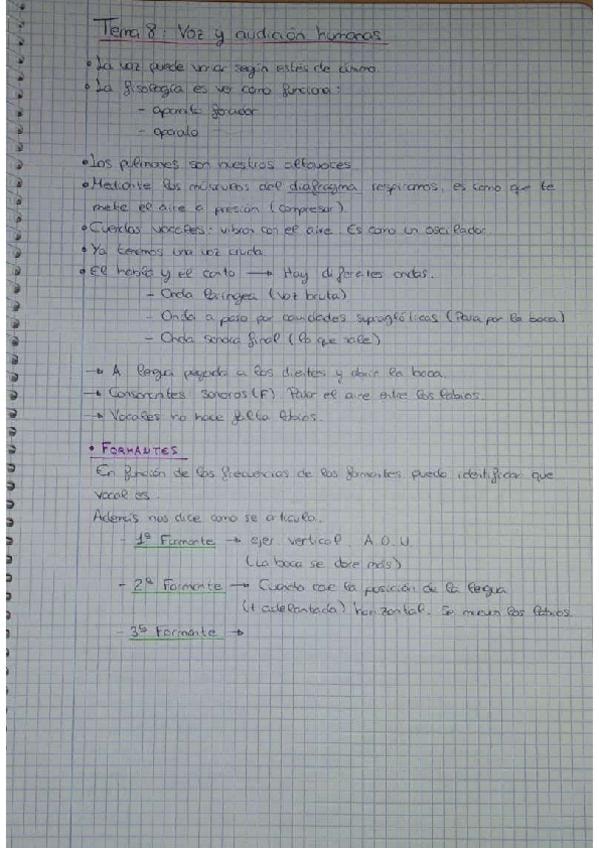 Tema 8: Voz y audición humanas
• La voz puede variar según estrés de ánimo.
• La fisiología es ver cómo funciona:
- aparato fonador
- aparato
• Los pulmones son nuestros altavoces
• Mediante los músculos del diafragma respiramos, es como que te
mete el aire a presión (compresor).
• Cuerdas vocales: vibran con el aire. Es como un oscilador.
• Ya tenemos una voz cruda
• El habla y el canto → Hay diferentes ondas.
- Onda laríngea (voz bruta)
- Onda a paso por cavidades supraglóticas (Pasa por la boca)
- Onda sonora final (lo que sale)
→ A lengua pegada a los dientes y abrir la boca.
→ Consonantes sonoros (F) Pasar el aire entre los labios.
→ Vocales no hace falta labios.
• FORMANTES
En función de las frecuencias de los formantes puedo identificar que
vocal es.
Además nos dice como se articula.
- 1º Formante → ejer vertical. A.O.U.
(La boca se abre más)
- 2º Formante → Cuanto cae la posición de la lengua
(+ adelantada) horizontal. Se mueven los labios.
- 3º Formante →